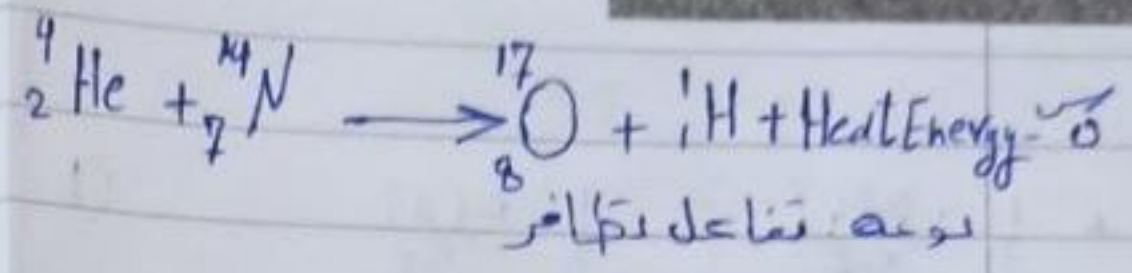 ⁴₂He + ¹⁴₇N ⟶ ¹⁷₈O + ¹₁H + Heat Energy
نوعه تفاعل